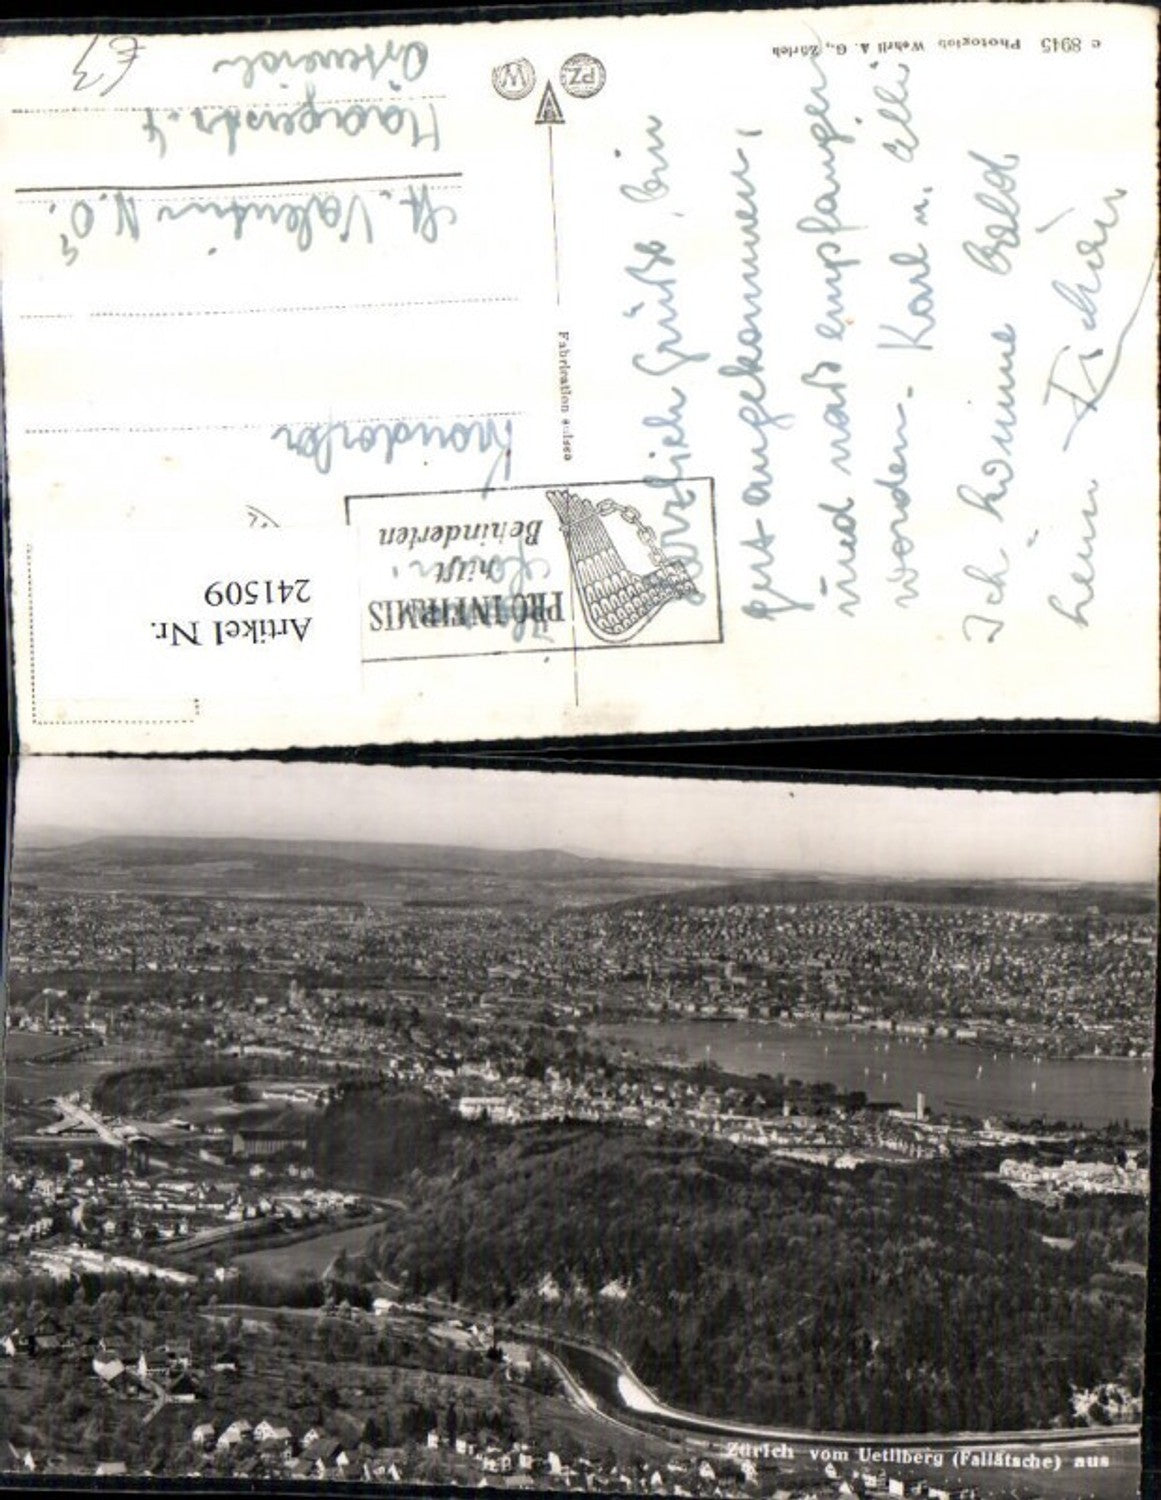 c 8945 Photoglob Wehrli A. G., Zürich
PZ
W
Fabrication suisse
Herzlich Grüße, bin
gut angekommen,
und naß empfangen
worden. Karl u. Elli
Ich komme bald
heim
PRO INFIRMIS
hilft
Behinderten
Artikel Nr.
241509
St. Valentin N.Ö.
Österreich
€3
Zürich vom Uetliberg (Fallätsche) aus